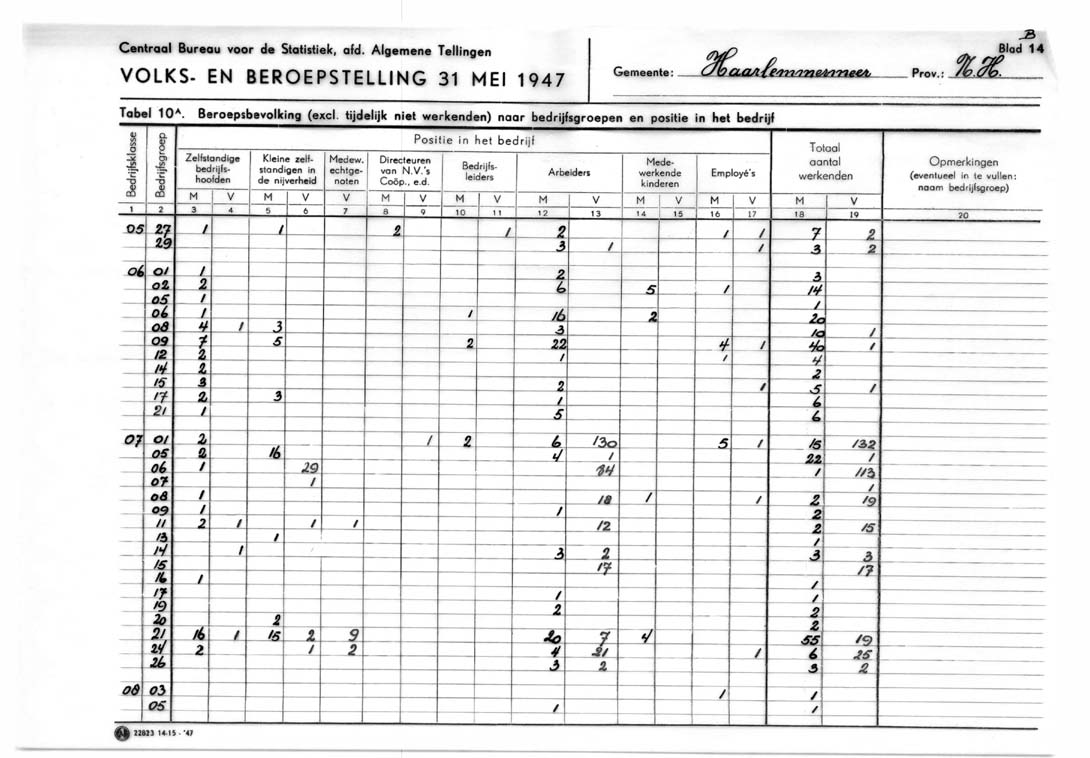 B
Centraal Bureau voor de Statistiek, afd. Algemene Tellingen
Blad 14
VOLKS- EN BEROEPSTELLING 31 MEI 1947
Gemeente: Haarlemmermeer Prov.: N.H.
Tabel 10A. Beroepsbevolking (excl. tijdelijk niet werkenden) naar bedrijfsgroepen en positie in het bedrijf
Bedrijfsklasse Bedrijfsgroep Positie in het bedrijf Totaal aantal werkenden Opmerkingen (eventueel in te vullen: naam bedrijfsgroep)
Zelfstandige bedrijfs-hoofden Kleine zelf-standigen in de nijverheid Medew. echtge-noten Directeuren van N.V.'s Coöp., e.d. Bedrijfs-leiders Arbeiders Mede-werkende kinderen Employé's
M V M V V M V M V M V M V M V M V
1 2 3 4 5 6 7 8 9 10 11 12 13 14 15 16 17 18 19 20
05 27 1 1 2 1 2 1 1 7 2
29 3 1 1 3 2
06 01 1 2 3
02 2 6 5 1 14
05 1 1
06 1 1 16 2 20
08 4 1 3 3 10 1
09 7 5 2 22 4 1 40 1
12 2 1 1 4
14 2 2
15 3 2 1 5 1
17 2 3 1 6
21 1 5 6
07 01 2 1 2 6 130 5 1 15 132
05 2 16 4 1 22 1
06 1 29 84 1 113
07 1 1
08 1 18 1 1 2 19
09 1 1 2
11 2 1 1 1 12 2 15
13 1 1
14 1 3 2 3 3
15 17 17
16 1 1
17 1 1
19 2 2
20 2 2
21 16 1 15 2 9 20 7 4 55 19
24 2 1 2 4 21 1 6 25
26 3 2 3 2
08 03 1 1
05 1 1
22823 14-15 - '47